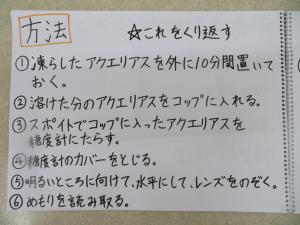 方法
☆これをくり返す
①凍らしたアクエリアスを外に10分間置いて
おく。
②溶けた分のアクエリアスをコップに入れる。
③スポイトでコップに入ったアクエリアスを
糖度計にたらす。
④糖度計のカバーをとじる。
⑤明るいところに向けて、水平にして、レンズをのぞく。
⑥めもりを読み取る。